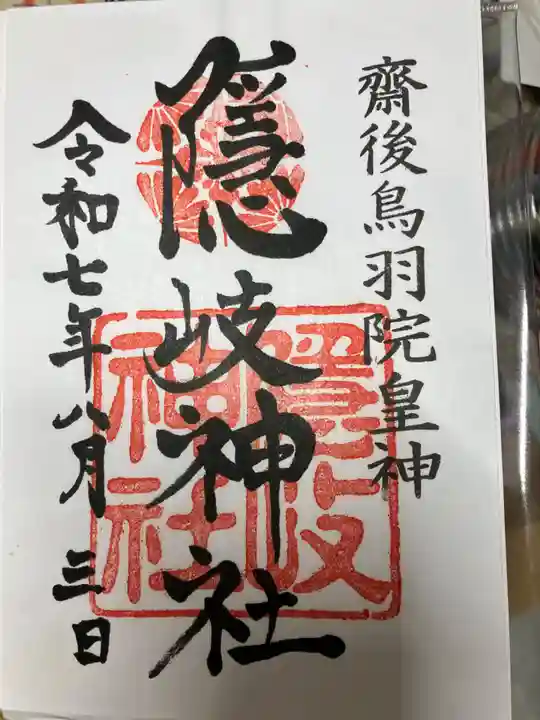 齋後鳥羽院皇神
隠岐神社
令和七年八月三日
隠岐
神社